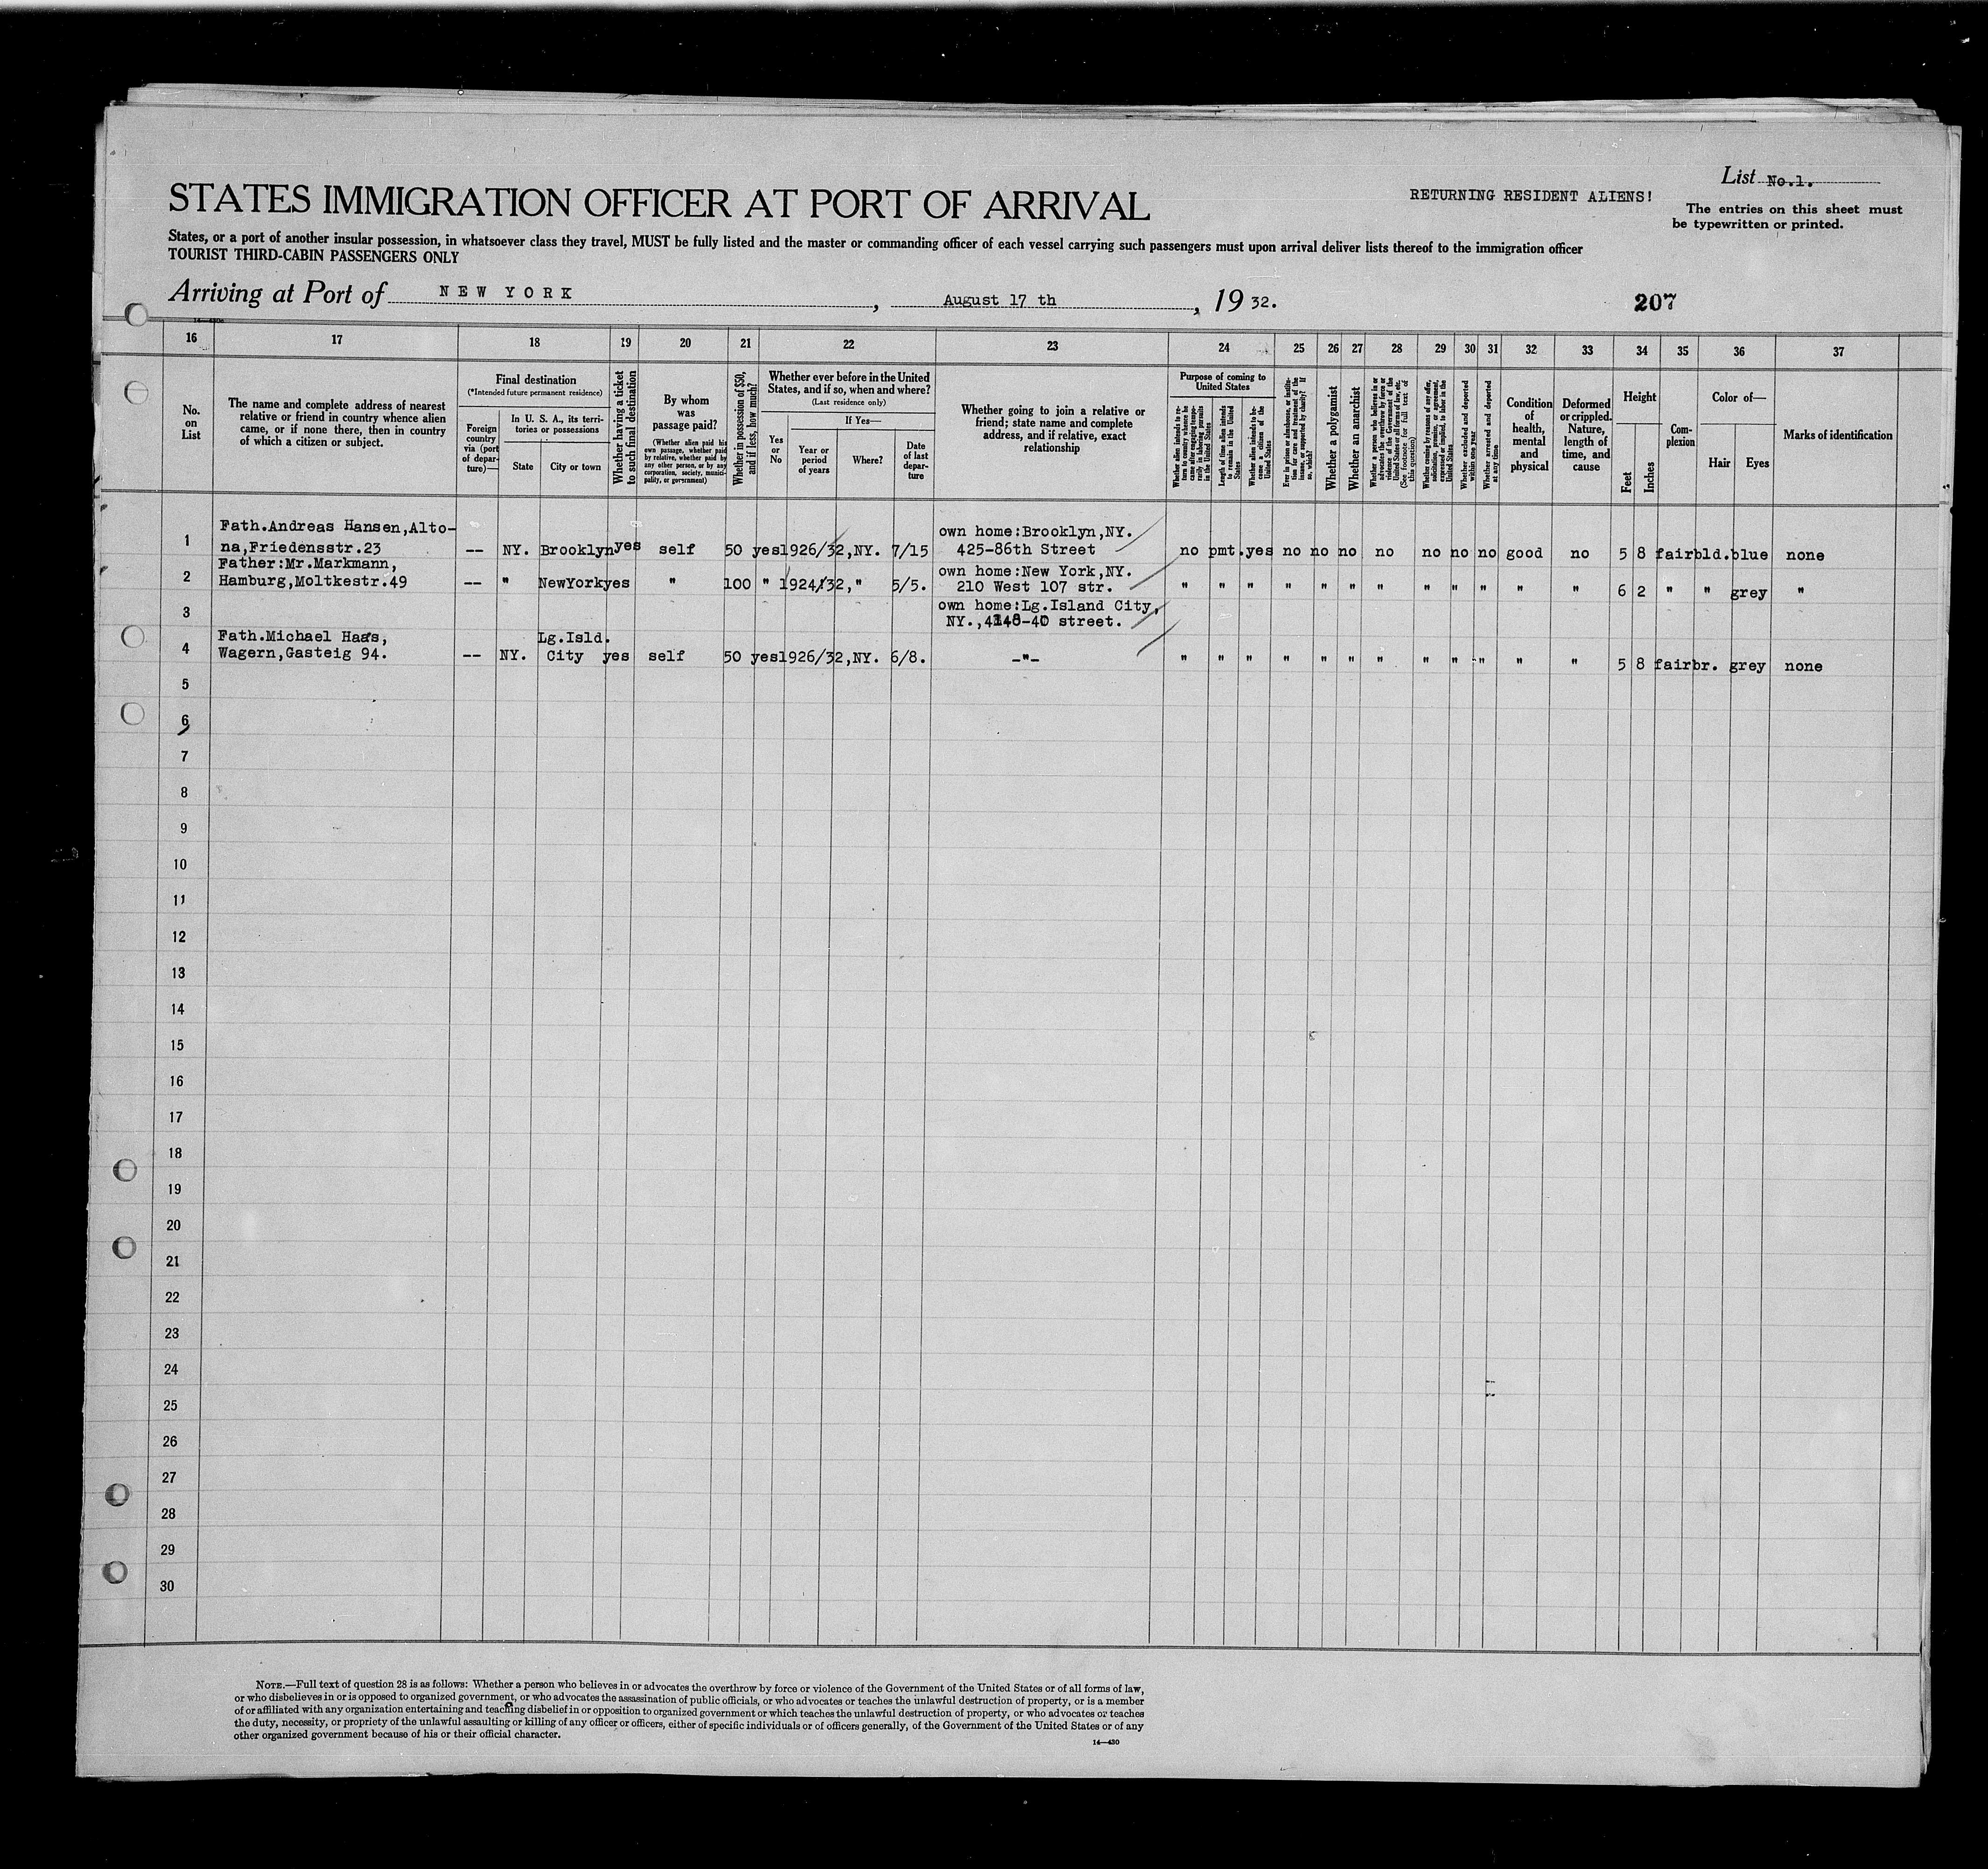 List No.1.
STATES IMMIGRATION OFFICER AT PORT OF ARRIVAL
RETURNING RESIDENT ALIENS!
The entries on this sheet must
be typewritten or printed.
States, or a port of another insular possession, in whatsoever class they travel, MUST be fully listed and the master or commanding officer of each vessel carrying such passengers must upon arrival deliver lists thereof to the immigration officer
TOURIST THIRD-CABIN PASSENGERS ONLY
Arriving at Port of NEW YORK, August 17 th, 19 32.
207
16 17 18 19 20 21 22 23 24 25 26 27 28 29 30 31 32 33 34 35 36 37
No.
on
List
The name and complete address of nearest
relative or friend in country whence alien
came, or if none there, then in country
of which a citizen or subject.
Final destination
(*Intended future permanent residence)
Foreign
country
via (port
of depar-
ture)—
In U. S. A., its terri-
tories or possessions
State
City or town
Whether having a ticket
to such final destination
By whom
was
passage paid?
(Whether alien paid his
own passage, whether paid
by relative, whether paid by
any other person, or by any
corporation, society, munici-
pality, or government)
Whether in possession of $50,
and if less, how much?
Whether ever before in the United
States, and if so, when and where?
(Last residence only)
Yes
or
No
If Yes—
Year or
period
of years
Where?
Date
of last
depar-
ture
Whether going to join a relative or
friend; state name and complete
address, and if relative, exact
relationship
Purpose of coming to
United States
Whether alien intends to re-
turn to country whence he
came after engaging tempo-
rarily in laboring pursuits
in the United States
Length of time alien intends
to remain in the United
States
Whether alien intends to be-
come a citizen of the
United States
Ever in prison or almshouse, or institu-
tion for care and treatment of the
insane, or supported by charity? If
so, which?
Whether a polygamist
Whether an anarchist
Whether a person who believes in or
advocates the overthrow by force or
violence of the Government of the
United States or all forms of law, etc.
(See footnote for full text of
this question)
Whether coming by reason of any offer,
solicitation, promise, or agreement,
expressed or implied, to labor in the
United States
Whether excluded and deported
within one year
Whether arrested and deported
at any time
Condition
of
health,
mental
and
physical
Deformed
or crippled.
Nature,
length of
time, and
cause
Height
Feet
Inches
Com-
plexion
Color of—
Hair
Eyes
Marks of identification
Fath.Andreas Hansen,Alto- own home:Brooklyn,NY.
1 na,Friedensstr.23 -- NY. Brooklyn yes self 50 yes 1926/32,NY. 7/15 425-86th Street no pmt. yes no no no no no no no good no 5 8 fair bld. blue none
Father:Mr.Markmann, own home:New York,NY.
2 Hamburg,Moltkestr.49 -- " NewYork yes " 100 " 1924/32," 5/5. 210 West 107 str. " " " " " " " " " " " " 6 2 " " grey "
own home:Lg.Island City,
3 NY., street.
Fath.Michael Haas, Lg.Isld.
4 Wagern,Gasteig 94. -- NY. City yes self 50 yes 1926/32,NY. 6/8. -"- " " " " " " " " " " " " 5 8 fair br. grey none
5
6
7
8
9
10
11
12
13
14
15
16
17
18
19
20
21
22
23
24
25
26
27
28
29
30
NOTE.—Full text of question 28 is as follows: Whether a person who believes in or advocates the overthrow by force or violence of the Government of the United States or of all forms of law,
or who disbelieves in or is opposed to organized government, or who advocates the assassination of public officials, or who advocates or teaches the unlawful destruction of property, or is a member
of or affiliated with any organization entertaining and teaching disbelief in or opposition to organized government or which teaches the unlawful destruction of property, or who advocates or teaches
the duty, necessity, or propriety of the unlawful assaulting or killing of any officer or officers, either of specific individuals or of officers generally, of the Government of the United States or of any
other organized government because of his or their official character.
14—430